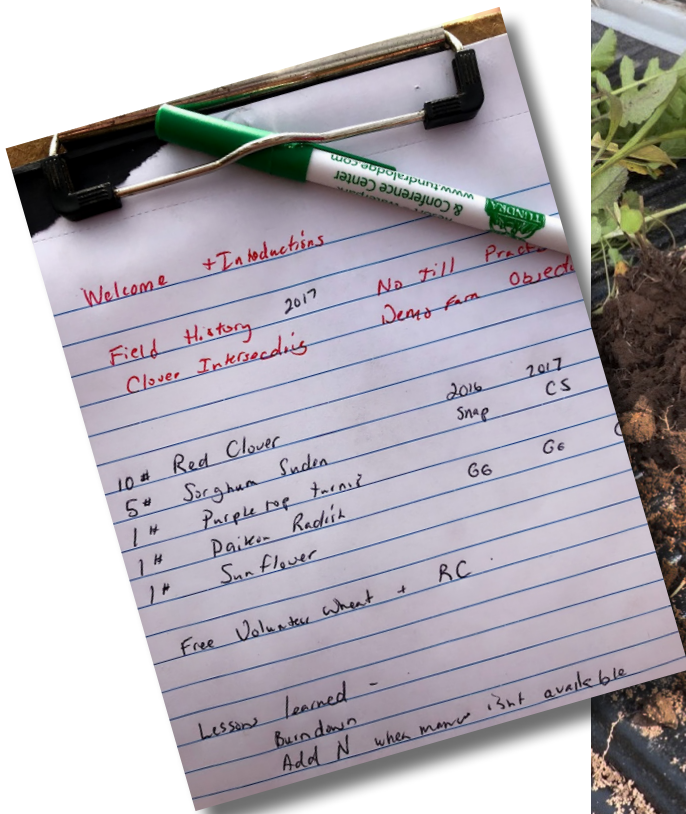 & Conference Center
www.tundralodge.com
TUNDRA
Welcome + Intoductions
Field History 2017 No Till Pract
Clover Interseeding Demo Farm Object
2016 2017
Snap CS
10# Red Clover
5# Sorghum Sudan
1# Purple top turnip GG GG
1# Daikon Radish
1# Sunflower
Free Volunteer Wheat + RC
Lessons learned -
Burndown
Add N when manure isnt available